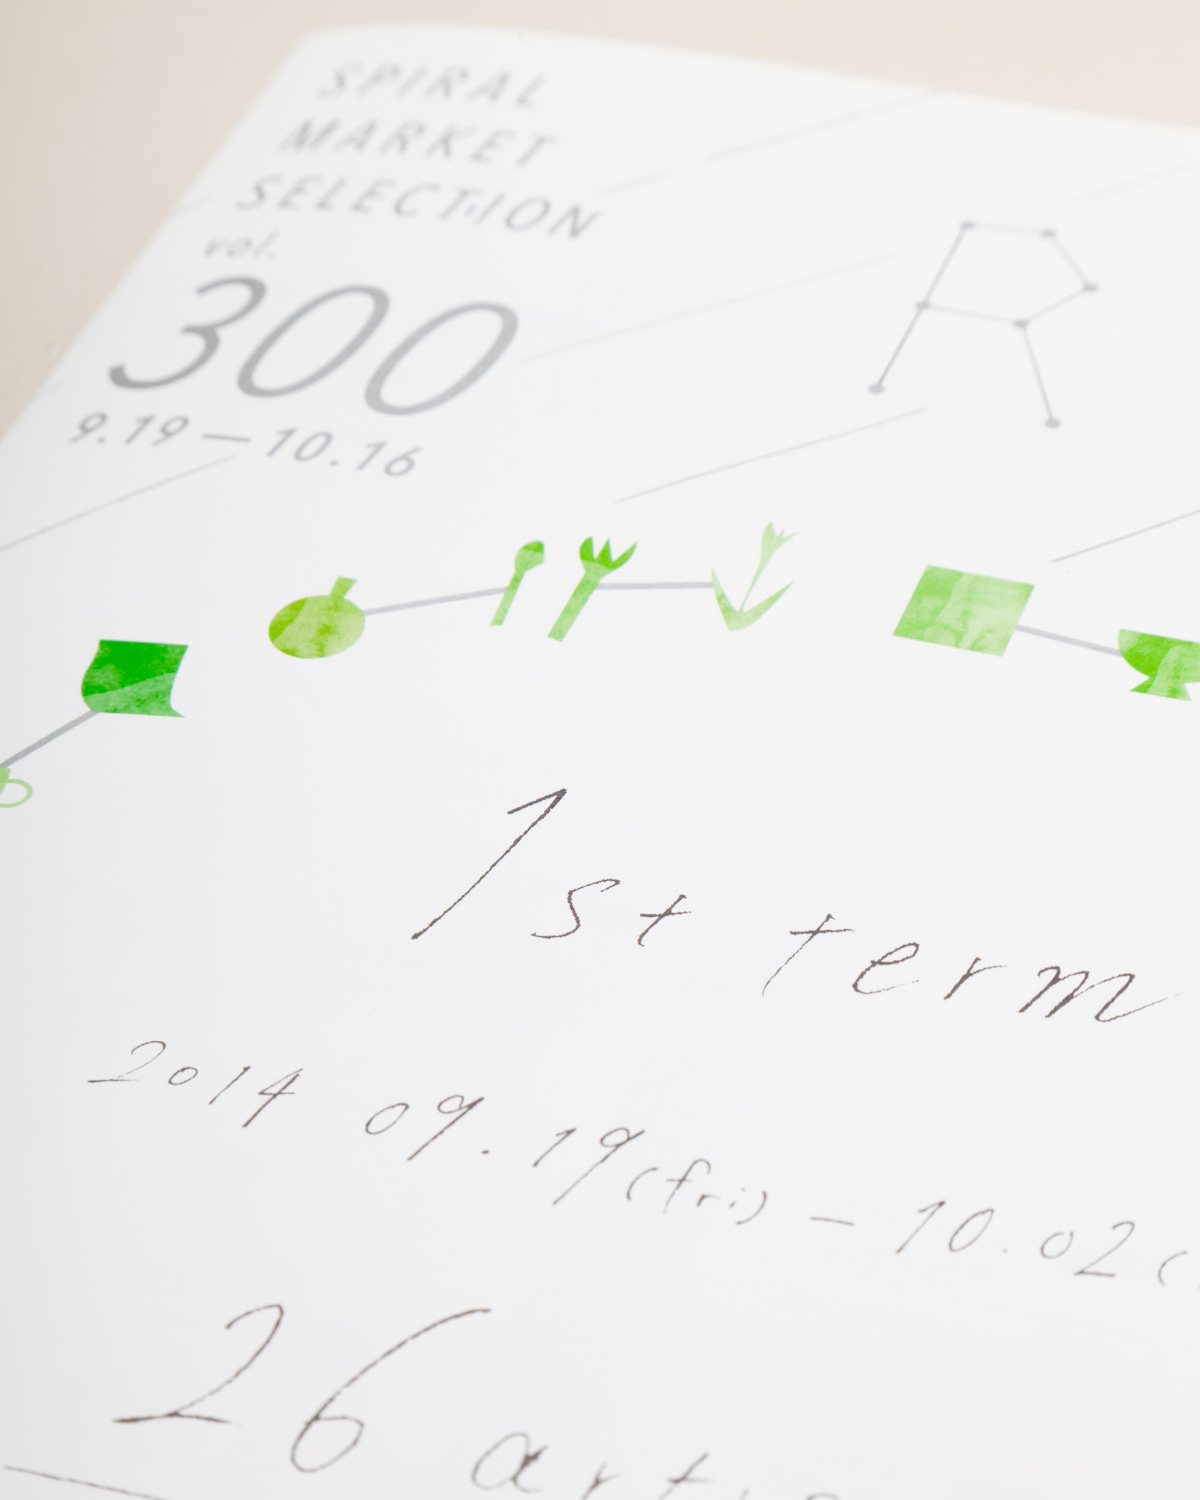 SPIRAL
MARKET
SELECTION
vol.
300
9.19—10.16
1st term
2014 09.19(fri) - 10.02(
26